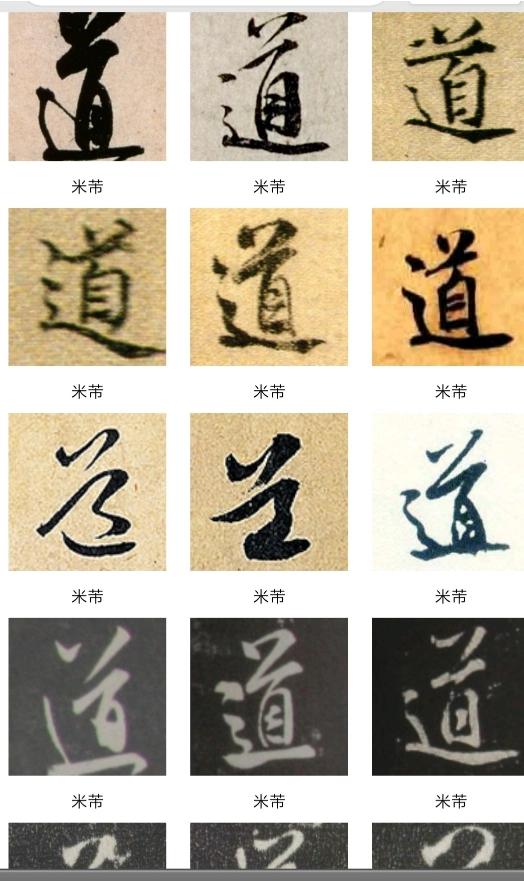 道 道 道
米芾 米芾 米芾
道 道 道
米芾 米芾 米芾
道 道 道
米芾 米芾 米芾
道 道 道
米芾 米芾 米芾